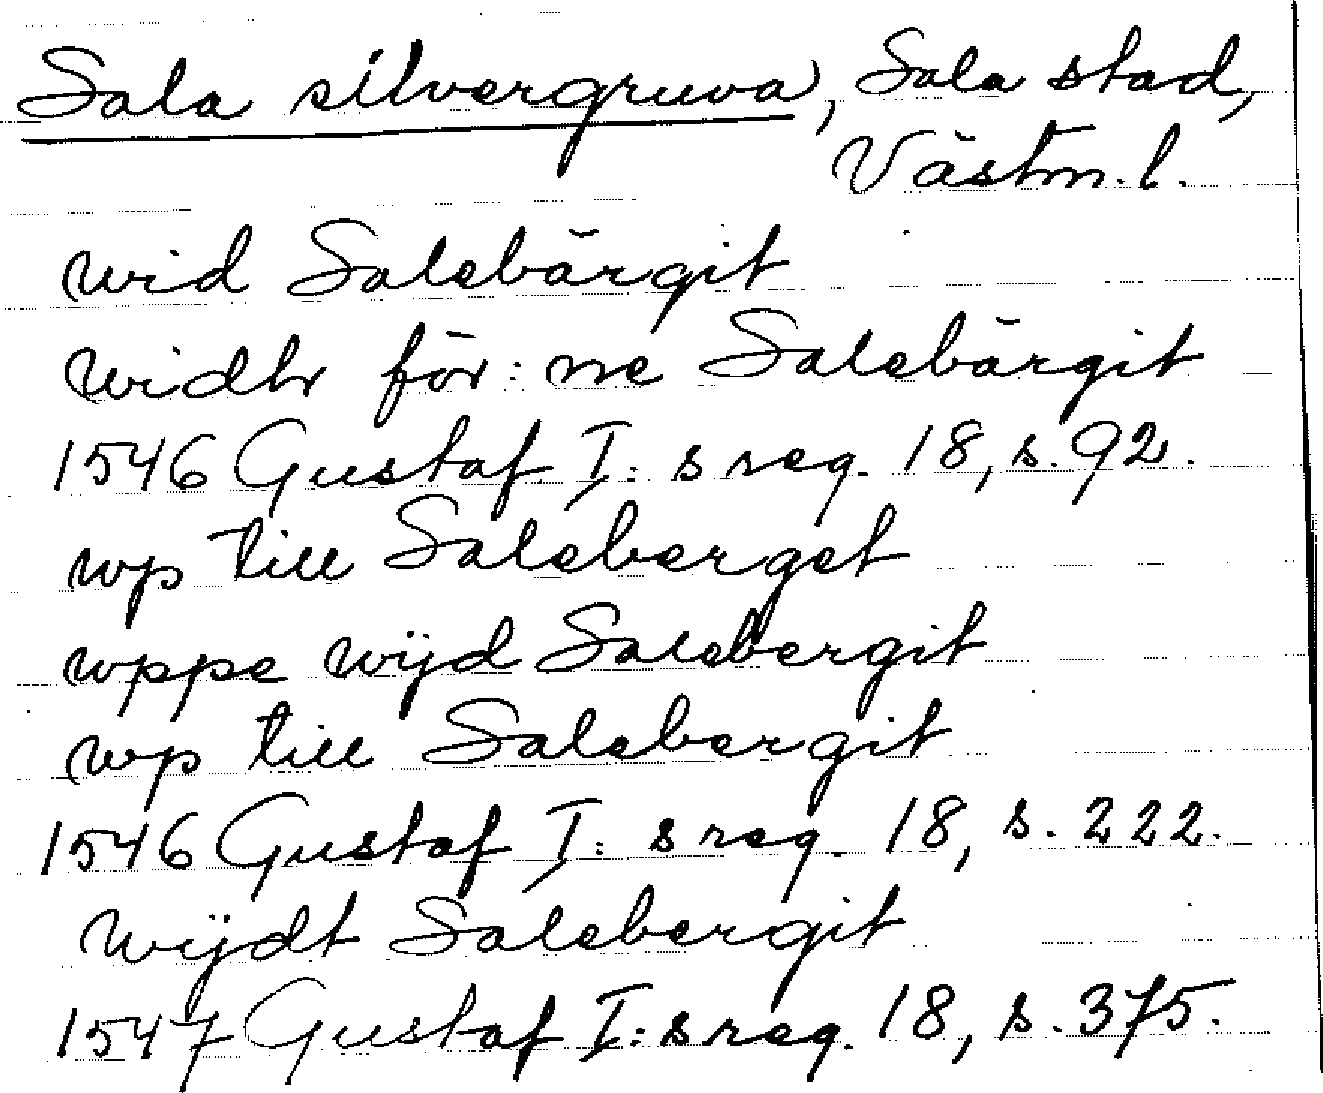 Sala silvergruva, Sala stad,
Västm. l.
wid Salebärgit
widhr för: ne Salebärgit
1546 Gustaf I: s reg. 18, s. 92.
wp till Saleberget
wppe wijd Salebergit
wp till Salebergit
1546 Gustaf I: s reg. 18, s. 222.
wijdt Salebergit
1547 Gustaf I: s reg. 18, s. 375.